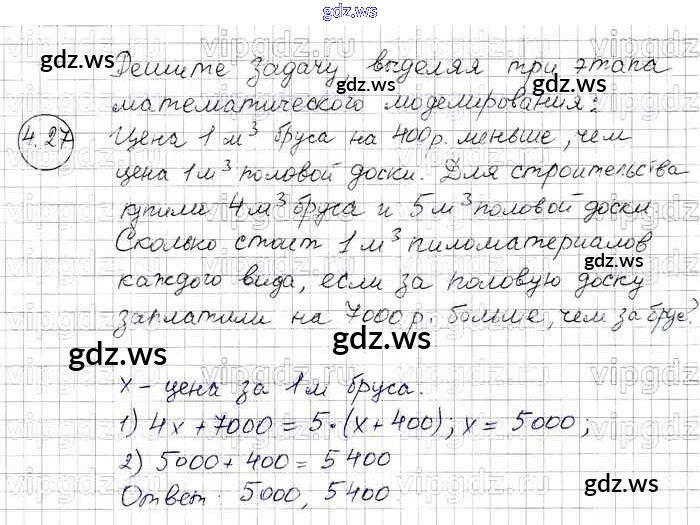 gdz.ws
Решите задачу, выделяя три этапа
математического моделирования:
4.27
Цена 1 м³ бруса на 400р. меньше, чем
цена 1 м³ половой доски. Для строительства
купили 4 м³ бруса и 5 м³ половой доски
Сколько стоит 1 м³ пиломатериалов
каждого вида, если за половую доску
заплатили на 7000р. больше, чем за брус?
x - цена за 1 м бруса.
1) 4x + 7000 = 5·(x + 400); x = 5000;
2) 5000 + 400 = 5400
Ответ: 5000, 5400.
gdz.ws
gdz.ws
gdz.ws
gdz.ws
gdz.ws
gdz.ws
gdz.ws
gdz.ws
gdz.ws
vipgdz.ru